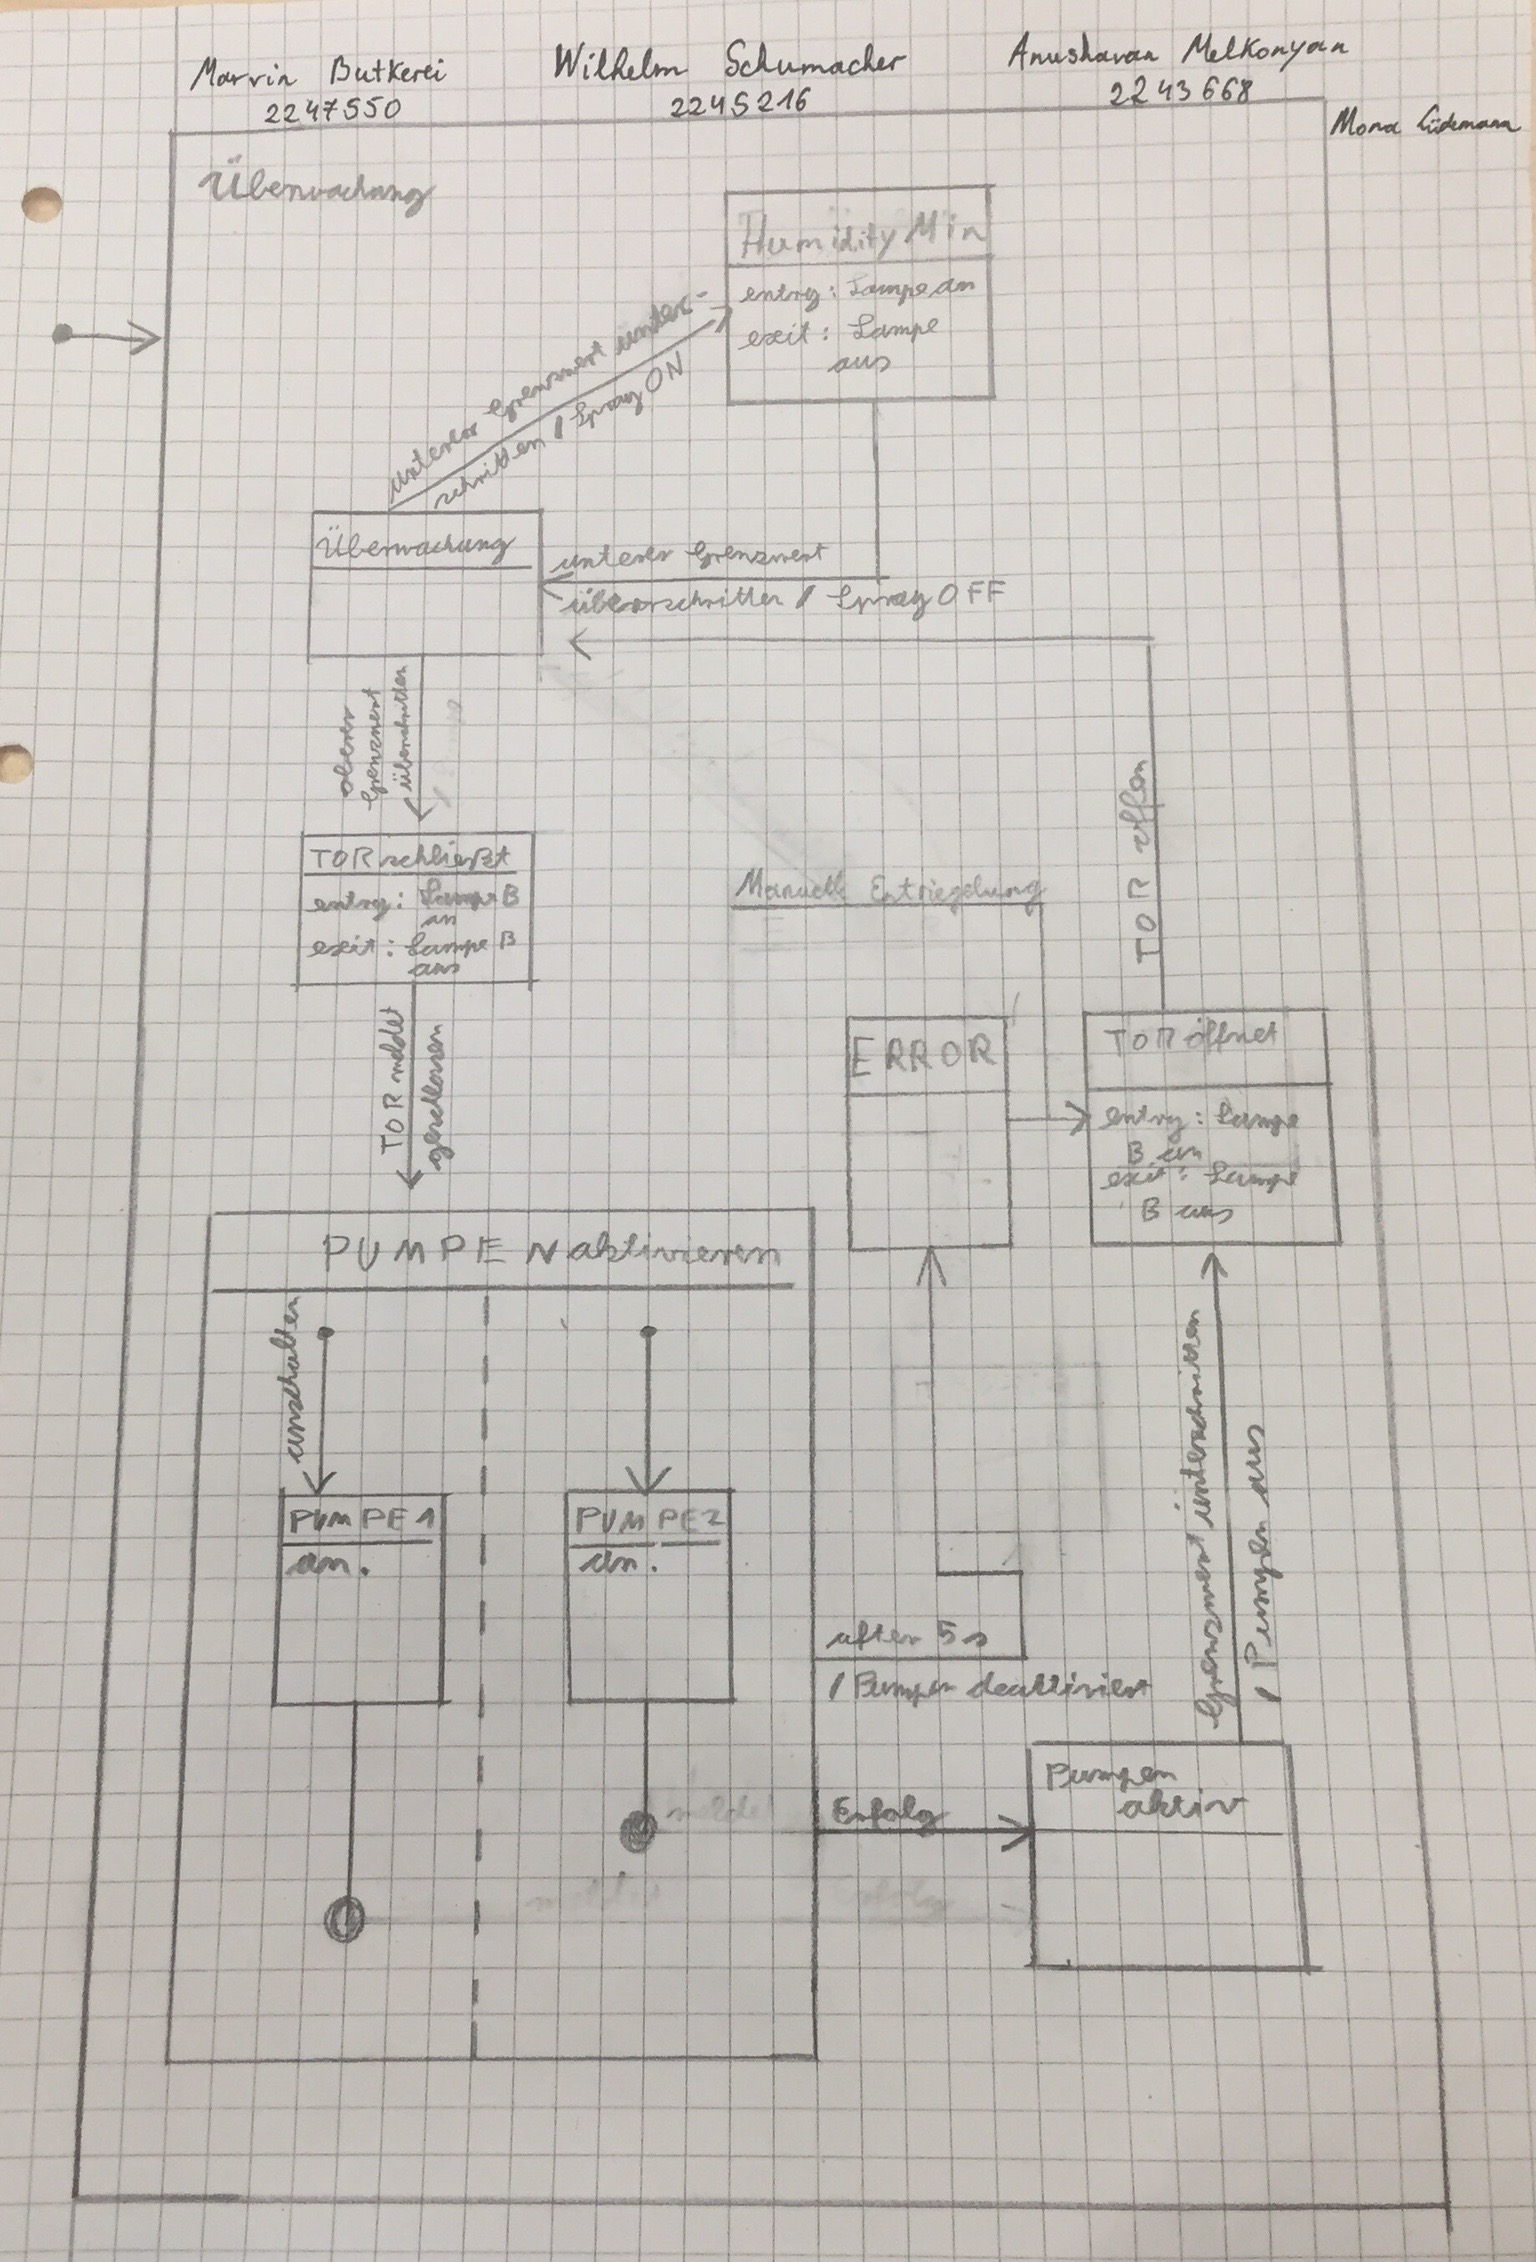 Marvin Butkerei
Wilhelm Schumacher
Anushavan Melkonyan
2247550
2245216
2243668
Mona Lüdemann
Überwachung
Humidity Min
entry: Lampe an
exit: Lampe
aus
unterer Grenzwert unter-
schritten / Spray ON
Überwachung
unterer Grenzwert
überschritten / Spray OFF
oberer
Grenzwert
überschritten
TOR schließt
entry: Lampe B
an
exit: Lampe B
aus
Manuelle Entriegelung
TOR offen
TOR meldet
geschlossen
ERROR
TOR öffnet
entry: Lampe
B an
exit: Lampe
B aus
PUMPEN aktivieren
einschalten
PUMPE 1
an.
PUMPE 2
an.
after 5s
/ Pumpen deaktiviert
Grenzwert unterschritten
/ Pumpen aus
Erfolg
Pumpen
aktiv
melde
meldet
Erfolg